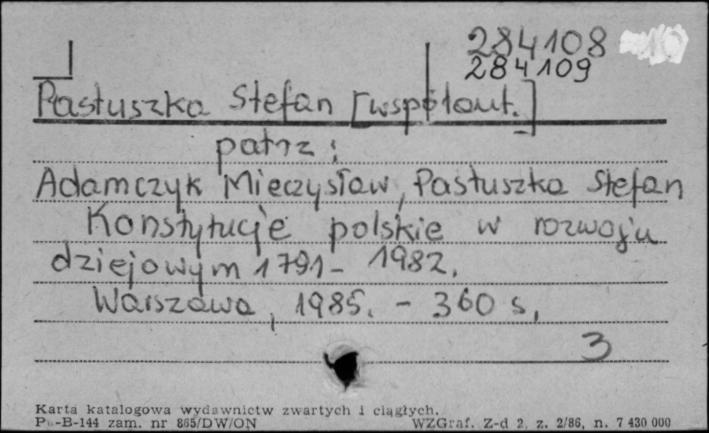 284108
284109
Pastuszka Stefan [współaut.]
patrz:
Adamczyk Mieczysław, Pastuszka Stefan
Konstytucje polskie w rozwoju
dziejowym 1791-1982.
Warszawa, 1985. - 360 s,
3
Karta katalogowa wydawnictw zwartych i ciągłych.
-B-144 zam. nr 865/DW/ON WZGraf. Z-d 2, z. 2/86, n. 7 430 000